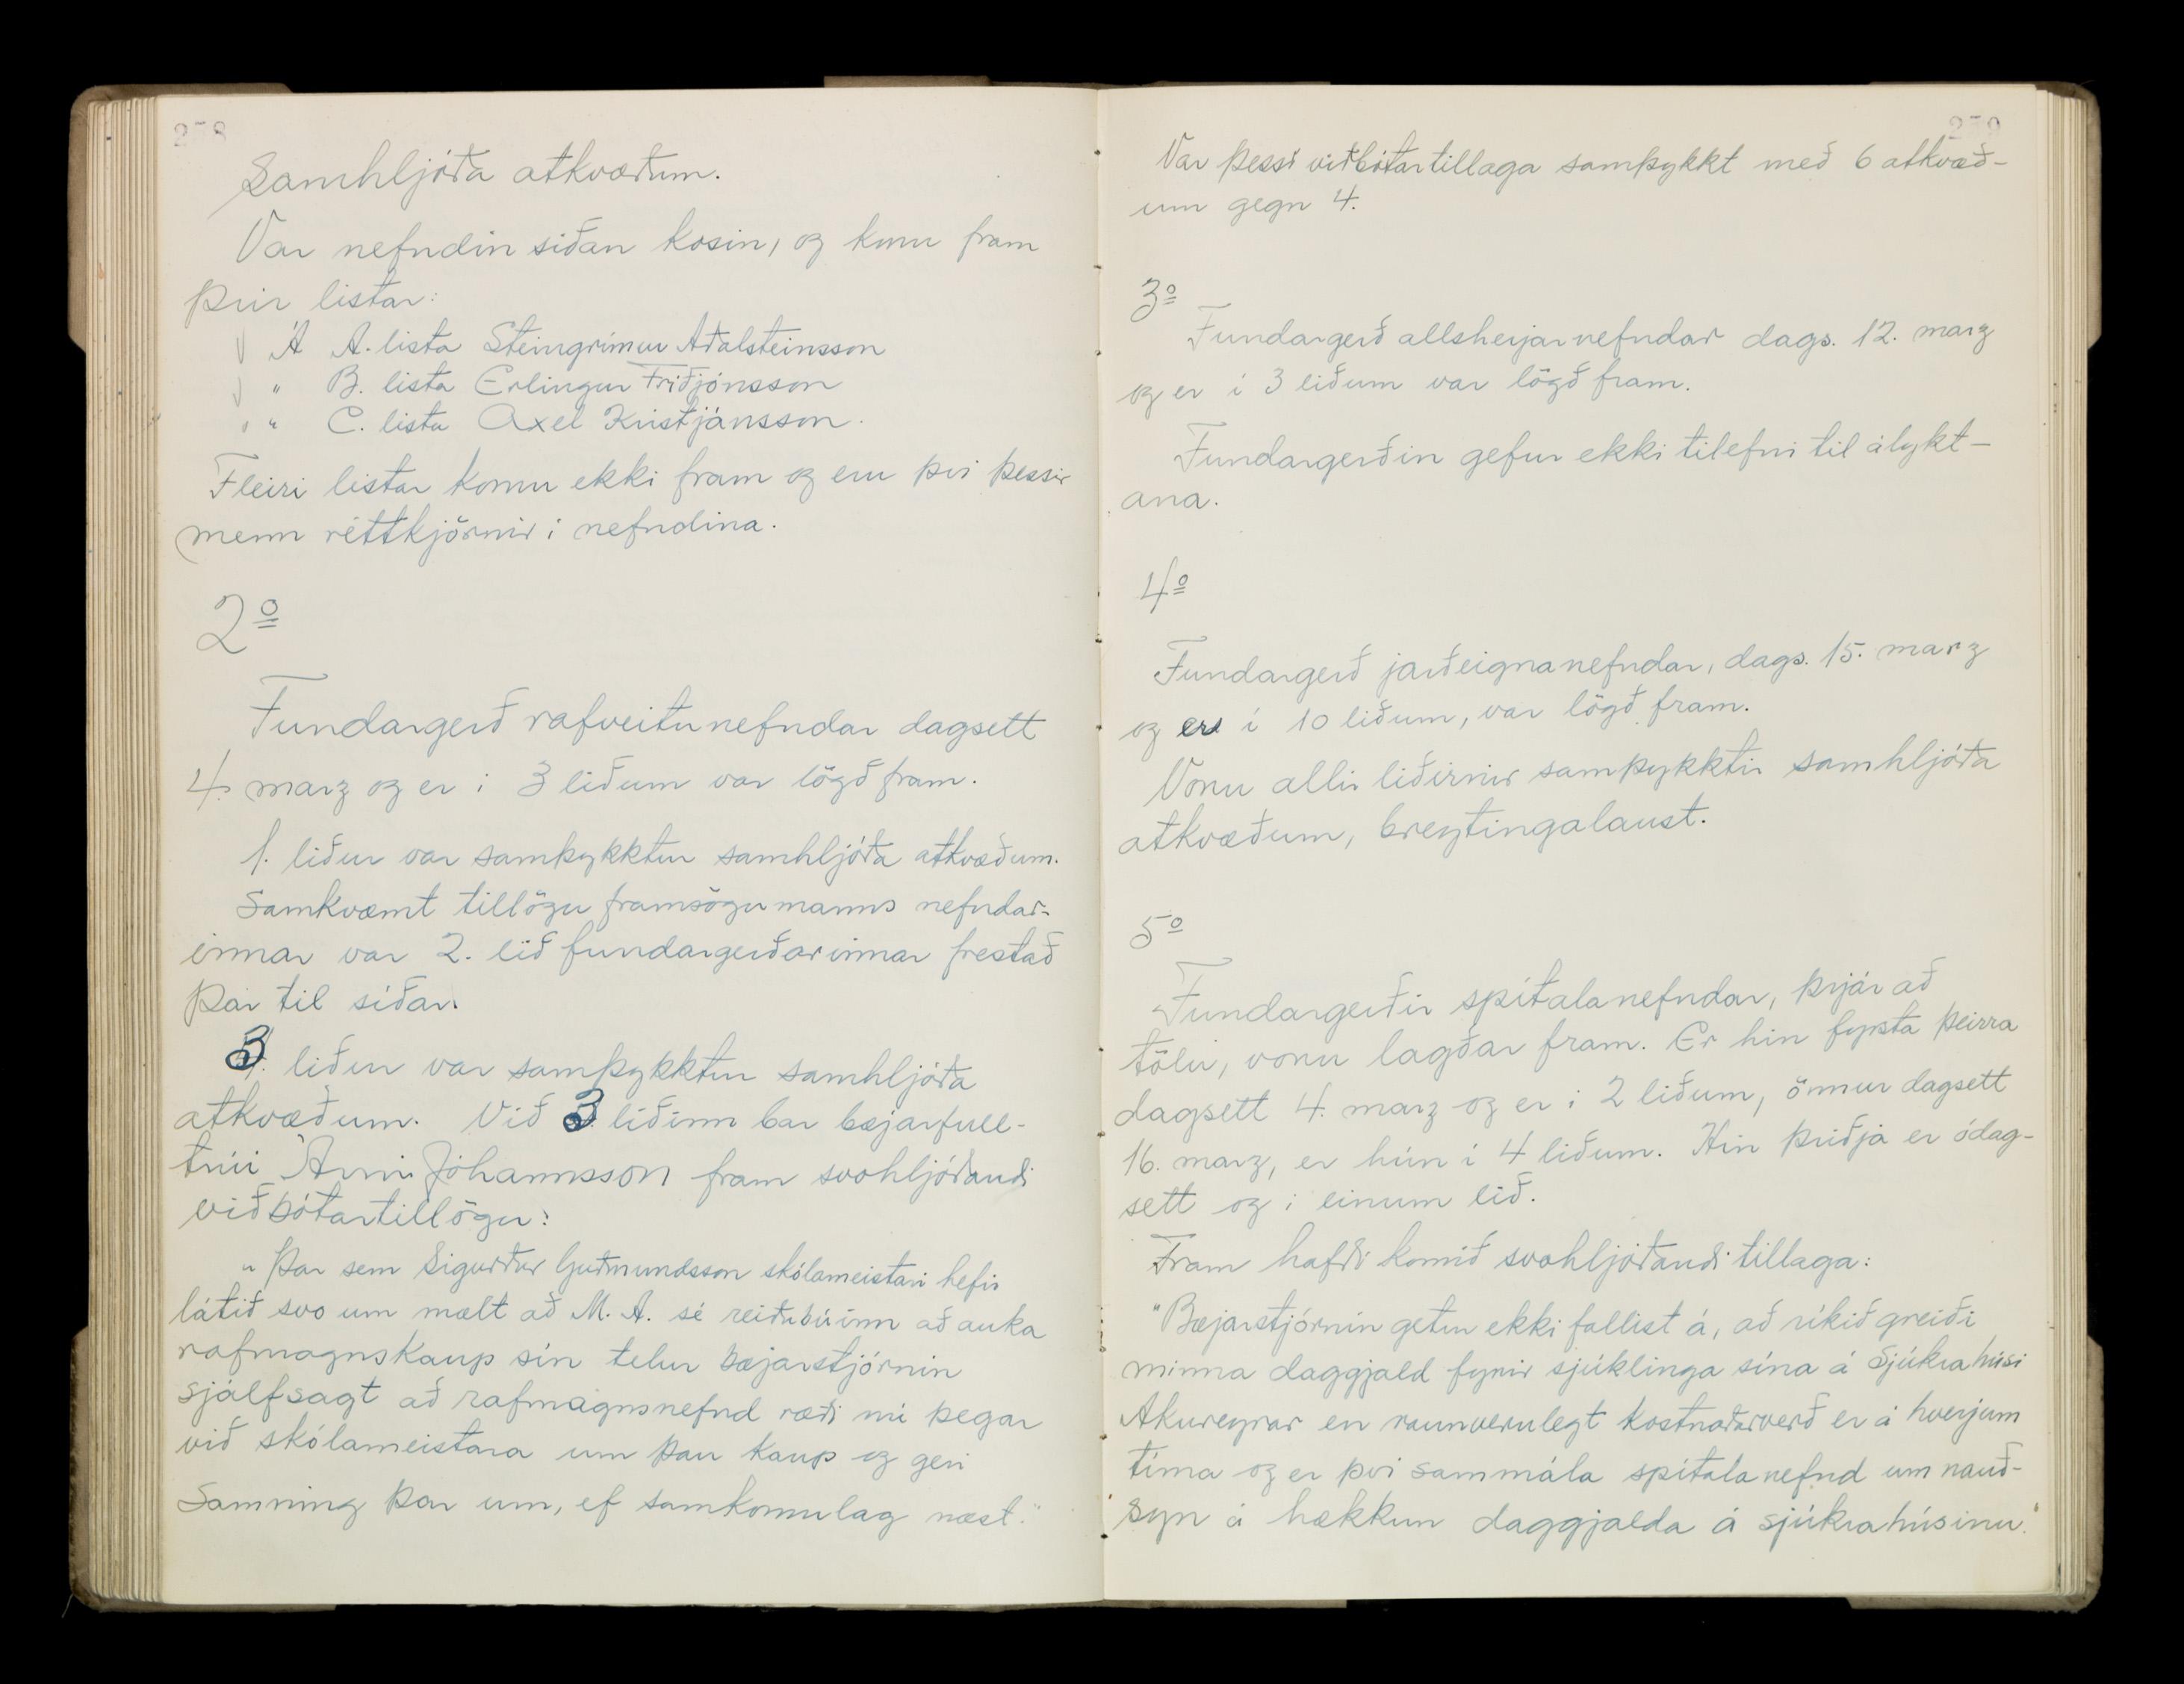 278
Samhljóða atkvæðum.
Var nefndin síðan kosin, og komu fram
þrír listar:
Á A. lista Steingrímur Aðalsteinsson
" B. lista Erlingur Friðjónsson
" C. lista Axel Kristjánsson.
Fleiri listar komu ekki fram og eru því þessir
menn réttkjörnir í nefndina.
2º
Fundargerð rafveitunefndar dagsett
4. marz og er í 3 liðum var lögð fram.
1. liður var samþykktur samhljóða atkvæðum.
Samkvæmt tillögu framsögumanns nefndar-
innar var 2. lið fundargerðarinnar frestað
þar til síðar.
3. liður var samþykktur samhljóða
atkvæðum. Við 3. liðinn bar bæjarfull-
trúi Árni Jóhannsson fram svohljóðandi
viðbótartillögu:
"Þar sem Sigurður Guðmundsson skólameistari hefir
látið svo um mælt að M. A. sé reiðubúinn að auka
rafmagnskaup sín telur bæjarstjórnin
sjálfsagt að rafmagnsnefnd ræði nú þegar
við skólameistara um þau kaup og geri
Samning þar um, ef samkomulag næst."
279
Var þessi viðbótartillaga samþykkt með 6 atkvæð-
um gegn 4.
3º
Fundargerð allsherjarnefndar dags. 12. marz
og er í 3 liðum var lögð fram.
Fundargerðin gefur ekki tilefni til álykt-
ana.
4º
Fundargerð jarðeignanefndar, dags. 15. marz
og er í 10 liðum, var lögð fram.
Voru allir liðirnir samþykktir samhljóða
atkvæðum, breytingalaust.
5º
Fundargerðir spítalanefndar, þrjár að
tölu, voru lagðar fram. Er hin fyrsta þeirra
dagsett 4. marz og er í 2 liðum, önnur dagsett
16. marz, er hún í 4 liðum. Hin þriðja er ódag-
sett og í einum lið.
Fram hafði komið svohljóðandi tillaga:
"Bæjarstjórnin getur ekki fallist á, að ríkið greiði
minna daggjald fyrir sjúklinga sína á Sjúkrahúsi
Akureyrar en raunverulegt kostnaðarverð er á hverjum
tíma og er því sammála spítalanefnd um nauð-
syn á hækkun daggjalda á sjúkrahúsinu."